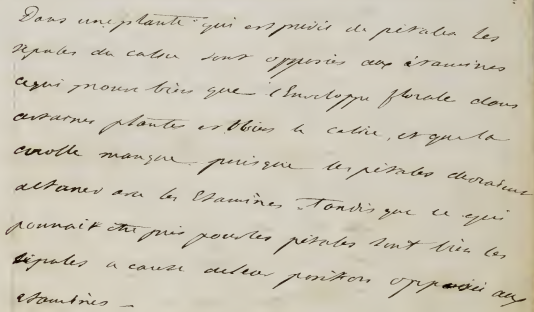 Dans une plante qui est privée de pétales les
sépales du calice sont opposés aux étamines
ce qui prouve bien que l'Enveloppe florale dans
certaines plantes est bien le calice, et que la
corolle manque. puisque les pétales devraient
alterner avec les Etamines Tandis que ce qui
pourrait être pris pour les pétales sont bien les
sépales a cause de leur position opposée aux
étamines —